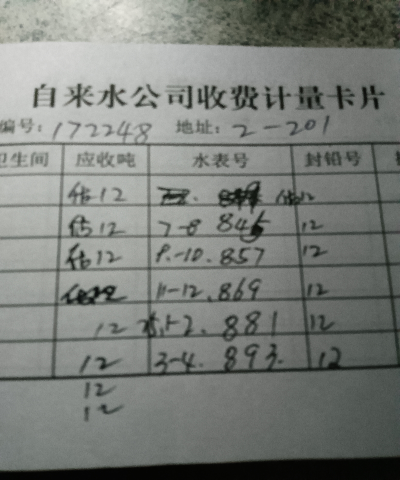 自来水公司收费计量卡片
编号: 172248 地址: 2-201
卫生间 应收吨 水表号 封铅号
估12 估12
估12 7-8 845 12
估12 9.-10. 857 12
11-12. 869 12
12 1-2. 881 12
12 3-4. 893. 12
12
12